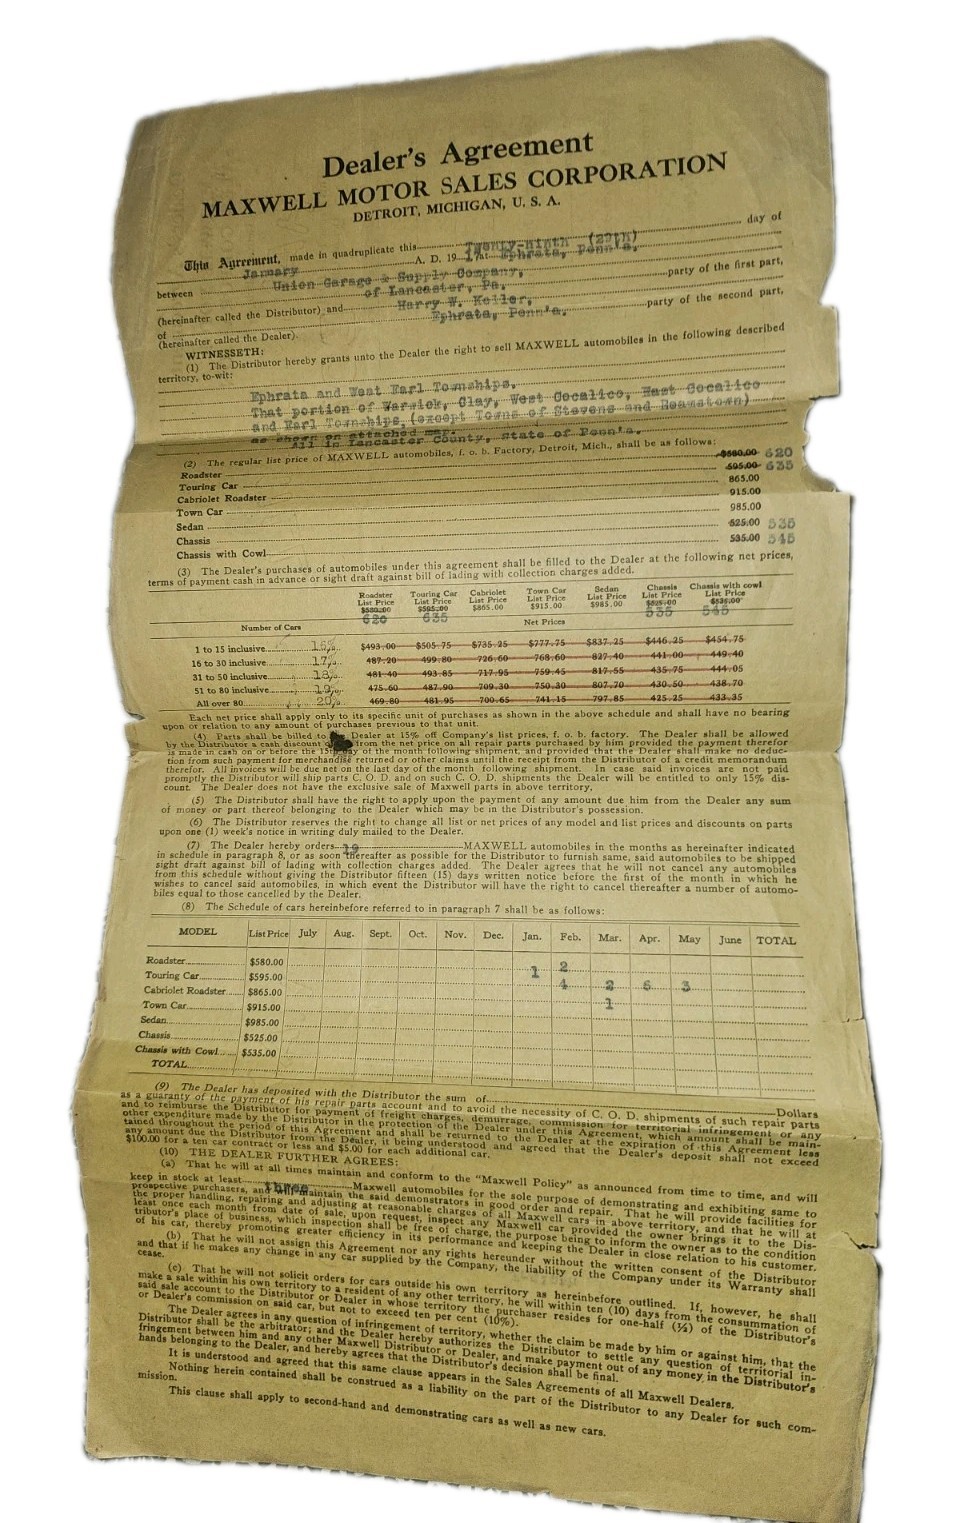 Dealer's Agreement
MAXWELL MOTOR SALES CORPORATION
DETROIT, MICHIGAN, U. S. A.
This Agreement, made in quadruplicate this Twenty-ninth (29th) day of
January A. D. 1917 at Ephrata, Penn'a.
between Union Garage & Supply Company,
of Lancaster, Pa. party of the first part,
(hereinafter called the Distributor) and Harry W. Keller,
of Ephrata, Penn'a. party of the second part,
(hereinafter called the Dealer).
WITNESSETH:
(1) The Distributor hereby grants unto the Dealer the right to sell MAXWELL automobiles in the following described
territory, to-wit:
Ephrata and West Earl Townships.
That portion of Warwick, Clay, West Cocalico, East Cocalico
and Earl Townships, (except Towns of Stevens and Reamstown)
as shown on attached map.
All in Lancaster County, State of Penn'a.
(2) The regular list price of MAXWELL automobiles, f. o. b. Factory, Detroit, Mich., shall be as follows:
Roadster $580.00 620
Touring Car 595.00 635
Cabriolet Roadster 865.00
Town Car 915.00
Sedan 985.00
Chassis 525.00 535
Chassis with Cowl 535.00 545
(3) The Dealer's purchases of automobiles under this agreement shall be filled to the Dealer at the following net prices,
terms of payment cash in advance or sight draft against bill of lading with collection charges added.
Roadster Touring Car Cabriolet Town Car Sedan Chassis Chassis with cowl
List Price List Price List Price List Price List Price List Price List Price
$580.00 $595.00 $865.00 $915.00 $985.00 $525.00 $535.00
620 635 535 545
Number of Cars Net Prices
1 to 15 inclusive 15% $493.00 $505.75 $735.25 $777.75 $837.25 $446.25 $454.75
16 to 30 inclusive 17% 487.20 499.80 726.60 768.60 827.40 441.00 449.40
31 to 50 inclusive 18% 481.40 493.85 717.95 759.45 817.55 435.75 444.05
51 to 80 inclusive 19% 475.60 487.90 709.30 750.30 807.70 430.50 438.70
All over 80 20% 469.80 481.95 700.65 741.15 797.85 425.25 433.35
Each net price shall apply only to its specific unit of purchases as shown in the above schedule and shall have no bearing
upon or relation to any amount of purchases previous to that unit.
(4) Parts shall be billed to Dealer at 15% off Company's list prices, f. o. b. factory. The Dealer shall be allowed
by the Distributor a cash discount from the net price on all repair parts purchased by him provided the payment therefor
is made in cash on or before the 15th day of the month following shipment, and provided that the Dealer shall make no deduc-
tion from such payment for merchandise returned or other claims until the receipt from the Distributor of a credit memorandum
therefor. All invoices will be due net on the last day of the month following shipment. In case said invoices are not paid
promptly the Distributor will ship parts C. O. D. and on such C. O. D. shipments the Dealer will be entitled to only 15% dis-
count. The Dealer does not have the exclusive sale of Maxwell parts in above territory.
(5) The Distributor shall have the right to apply upon the payment of any amount due him from the Dealer any sum
of money or part thereof belonging to the Dealer which may be in the Distributor's possession.
(6) The Distributor reserves the right to change all list or net prices of any model and list prices and discounts on parts
upon one (1) week's notice in writing duly mailed to the Dealer.
(7) The Dealer hereby orders 19 MAXWELL automobiles in the months as hereinafter indicated
in schedule in paragraph 8, or as soon thereafter as possible for the Distributor to furnish same, said automobiles to be shipped
sight draft against bill of lading with collection charges added. The Dealer agrees that he will not cancel any automobiles
from this schedule without giving the Distributor fifteen (15) days written notice before the first of the month in which he
wishes to cancel said automobiles, in which event the Distributor will have the right to cancel thereafter a number of automo-
biles equal to those cancelled by the Dealer.
(8) The Schedule of cars hereinbefore referred to in paragraph 7 shall be as follows:
MODEL List Price July Aug. Sept. Oct. Nov. Dec. Jan. Feb. Mar. Apr. May June TOTAL
Roadster $580.00 2
Touring Car $595.00 1 4 2 6 3
Cabriolet Roadster $865.00 1
Town Car $915.00
Sedan $985.00
Chassis $525.00
Chassis with Cowl $535.00
TOTAL
(9) The Dealer has deposited with the Distributor the sum of Dollars
as a guaranty of the payment of his repair parts account and to avoid the necessity of C. O. D. shipments of such repair parts
and to reimburse the Distributor for payment of freight charges, demurrage, commission for territorial infringement or any
other expenditure made by the Distributor in the protection of the Dealer under this Agreement, which amount shall be main-
tained throughout the period of this Agreement and shall be returned to the Dealer at the expiration of this Agreement less
any amount due the Distributor from the Dealer, it being understood and agreed that the Dealer's deposit shall not exceed
$100.00 for a ten car contract or less and $5.00 for each additional car.
(10) THE DEALER FURTHER AGREES:
(a) That he will at all times maintain and conform to the "Maxwell Policy" as announced from time to time, and will
keep in stock at least three Maxwell automobiles for the sole purpose of demonstrating and exhibiting same to
prospective purchasers, and will maintain the said demonstrators in good order and repair. That he will provide facilities for
the proper handling, repairing and adjusting at reasonable charges of all Maxwell cars in above territory, and that he will at
least once each month from date of sale, upon request, inspect any Maxwell car provided the owner brings it to the Dis-
tributor's place of business, which inspection shall be free of charge, the purpose being to inform the owner as to the condition
of his car, thereby promoting greater efficiency in its performance and keeping the Dealer in close relation to his customer.
(b) That he will not assign this Agreement nor any rights hereunder without the written consent of the Distributor
and that if he makes any change in any car supplied by the Company, the liability of the Company under its Warranty shall
cease.
(c) That he will not solicit orders for cars outside his own territory as hereinbefore outlined. If, however, he shall
make a sale within his own territory to a resident of any other territory, he will within ten (10) days from the consummation of
said sale account to the Distributor or Dealer in whose territory the purchaser resides for one-half (½) of the Distributor's
or Dealer's commission on said car, but not to exceed ten per cent (10%).
The Dealer agrees in any question of infringement of territory, whether the claim be made by him or against him, that the
Distributor shall be the arbitrator; and the Dealer hereby authorizes the Distributor to settle any question of territorial in-
fringement between him and any other Maxwell Distributor or Dealer, and make payment out of any money in the Distributor's
hands belonging to the Dealer, and hereby agrees that the Distributor's decision shall be final.
It is understood and agreed that this same clause appears in the Sales Agreements of all Maxwell Dealers.
Nothing herein contained shall be construed as a liability on the part of the Distributor to any Dealer for such com-
mission.
This clause shall apply to second-hand and demonstrating cars as well as new cars.